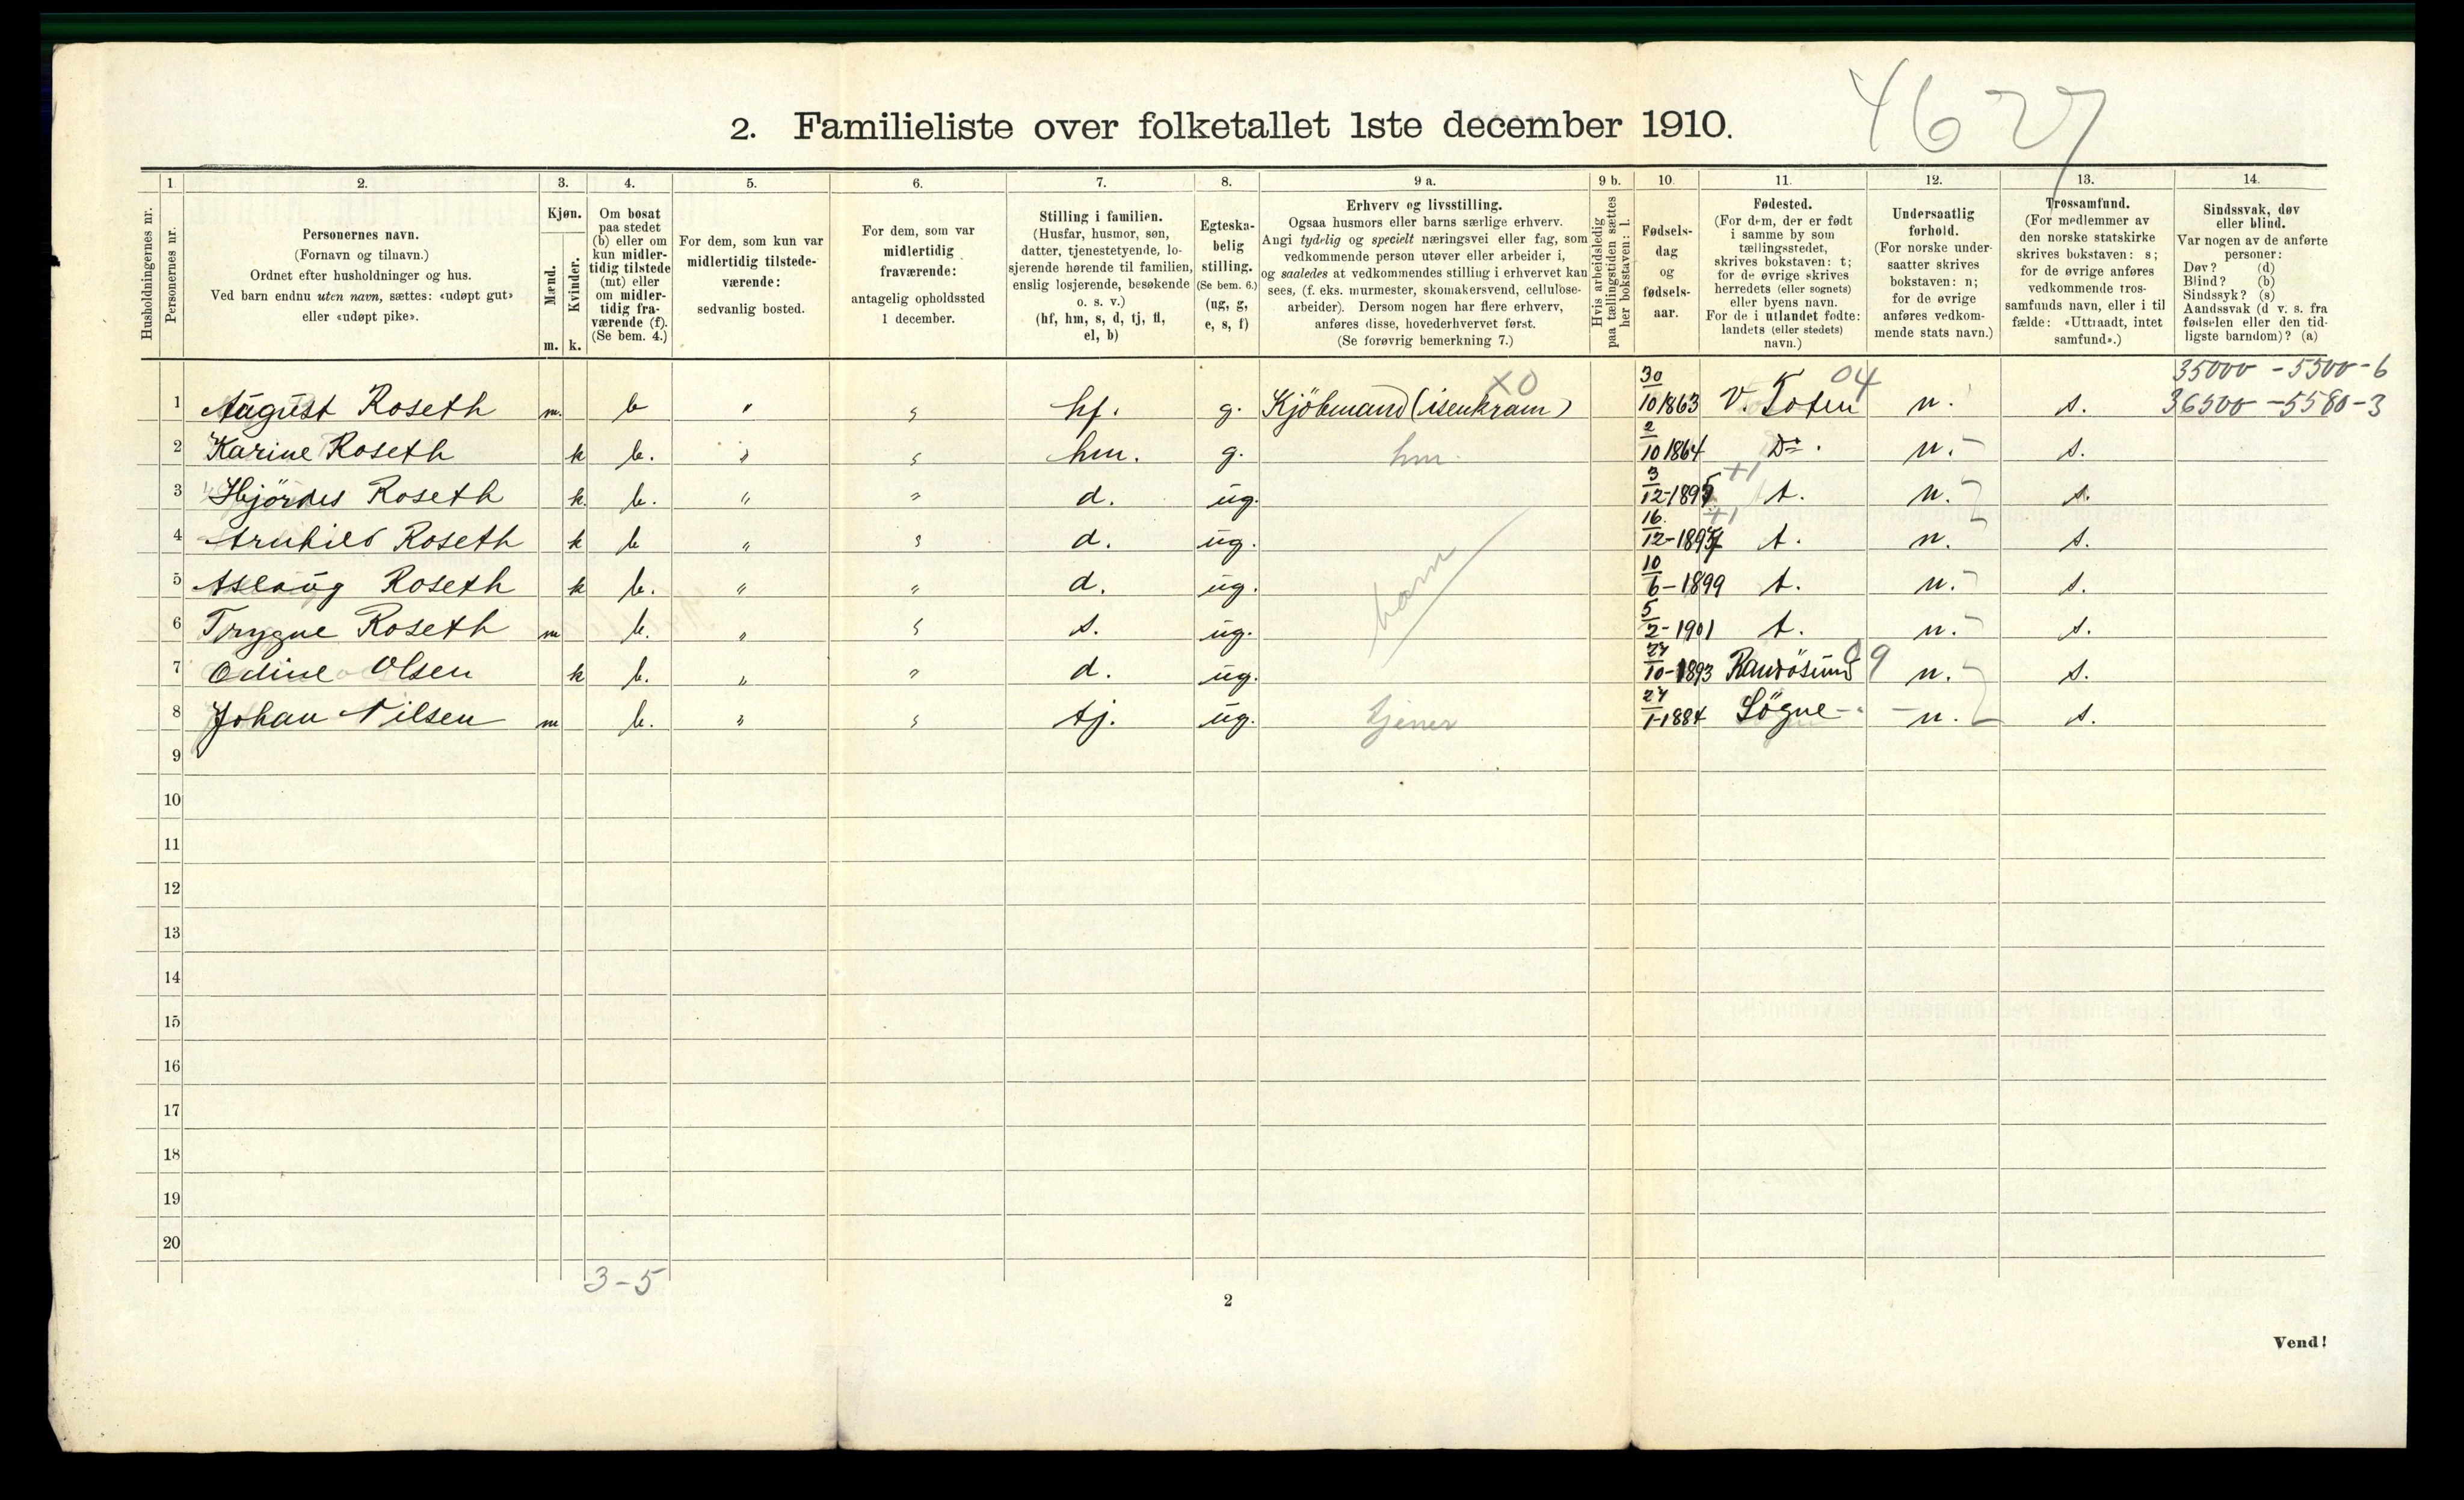 4627
2. Familieliste over folketallet 1ste december 1910.
Husholdningernes nr.
1
Personernes nr.
2.
Personernes navn.
(Fornavn og tilnavn.)
Ordnet efter husholdninger og hus.
Ved barn endnu uten navn, sættes: «udøpt gut»
eller «udøpt pike».
3.
Kjøn.
Mænd.
Kvinder.
m. k.
4.
Om bosat
paa stedet
(b) eller om
kun midler-
tidig tilstede
(mt) eller
om midler-
tidig fra-
værende (f).
(Se bem. 4.)
5.
For dem, som kun var
midlertidig tilstede-
værende:
sedvanlig bosted.
6.
For dem, som var
midlertidig
fraværende:
antagelig opholdssted
1 december.
7.
Stilling i familien.
(Husfar, husmor, søn,
datter, tjenestetyende, lo-
sjerende hørende til familien,
enslig losjerende, besøkende
o. s. v.)
(hf, hm, s, d, tj, fl,
el, b)
8.
Egteska-
belig
stilling.
(Se bem. 6.)
(ug, g,
e, s, f)
9 a.
Erhverv og livsstilling.
Ogsaa husmors eller barns særlige erhverv.
Angi tydelig og specielt næringsvei eller fag, som
vedkommende person utøver eller arbeider i,
og saaledes at vedkommendes stilling i erhvervet kan
sees, (f. eks. murmester, skomakersvend, cellulose-
arbeider). Dersom nogen har flere erhverv,
anføres disse, hovederhvervet først.
(Se forøvrig bemerkning 7.)
9 b.
Hvis arbeidsledig
paa tællingstiden sættes
her bokstaven: l.
10.
Fødsels-
dag
og
fødsels-
aar.
11.
Fødested.
(For dem, der er født
i samme by som
tællingsstedet,
skrives bokstaven: t;
for de øvrige skrives
herredets (eller sognets)
eller byens navn.
For de i utlandet fødte:
landets (eller stedets)
navn.)
12.
Undersaatlig
forhold.
(For norske under-
saatter skrives
bokstaven: n;
for de øvrige
anføres vedkom-
mende stats navn.)
13.
Trossamfund.
(For medlemmer av
den norske statskirke
skrives bokstaven: s;
for de øvrige anføres
vedkommende tros-
samfunds navn, eller i til
fælde: «Uttraadt, intet
samfund».)
14.
Sindssvak, døv
eller blind.
Var nogen av de anførte
personer:
Døv? (d)
Blind? (b)
Sindssyk? (s)
Aandssvak (d v. s. fra
fødselen eller den tid-
ligste barndom)? (a)
X0 04 35000 - 5500 - 6
1 August Roseth m. b " " hf. g. Kjöbmand (isenkram) 30/10 1863 V. Toten n. s. 36500 - 5580 - 3
2 Karine Roseth k b. " " hm. g. hm. 2/10 1864 Do. n. s.
+1
3 Hjördis Roseth k. b. " " d. ug. 3/12-1895 t. n. s.
+1
4 Arnhild Roseth k b " " d. ug. 16/12-1897 t. n. s.
5 Aslaug Roseth k b. " " d. ug. barn 10/6-1899 t. n. s.
6 Trygve Roseth m b. " " s. ug. 5/2-1901 t. n. s.
7 Odine Olsen k b. " " d. ug. 24/10-1893 Randösund 09 n. s.
8 Johan Nilsen m b. " " tj. ug. tjener 27/1-1884 Sögne n. s.
9
10
11
12
13
14
15
16
17
18
19
20
3-5
2
Vend!